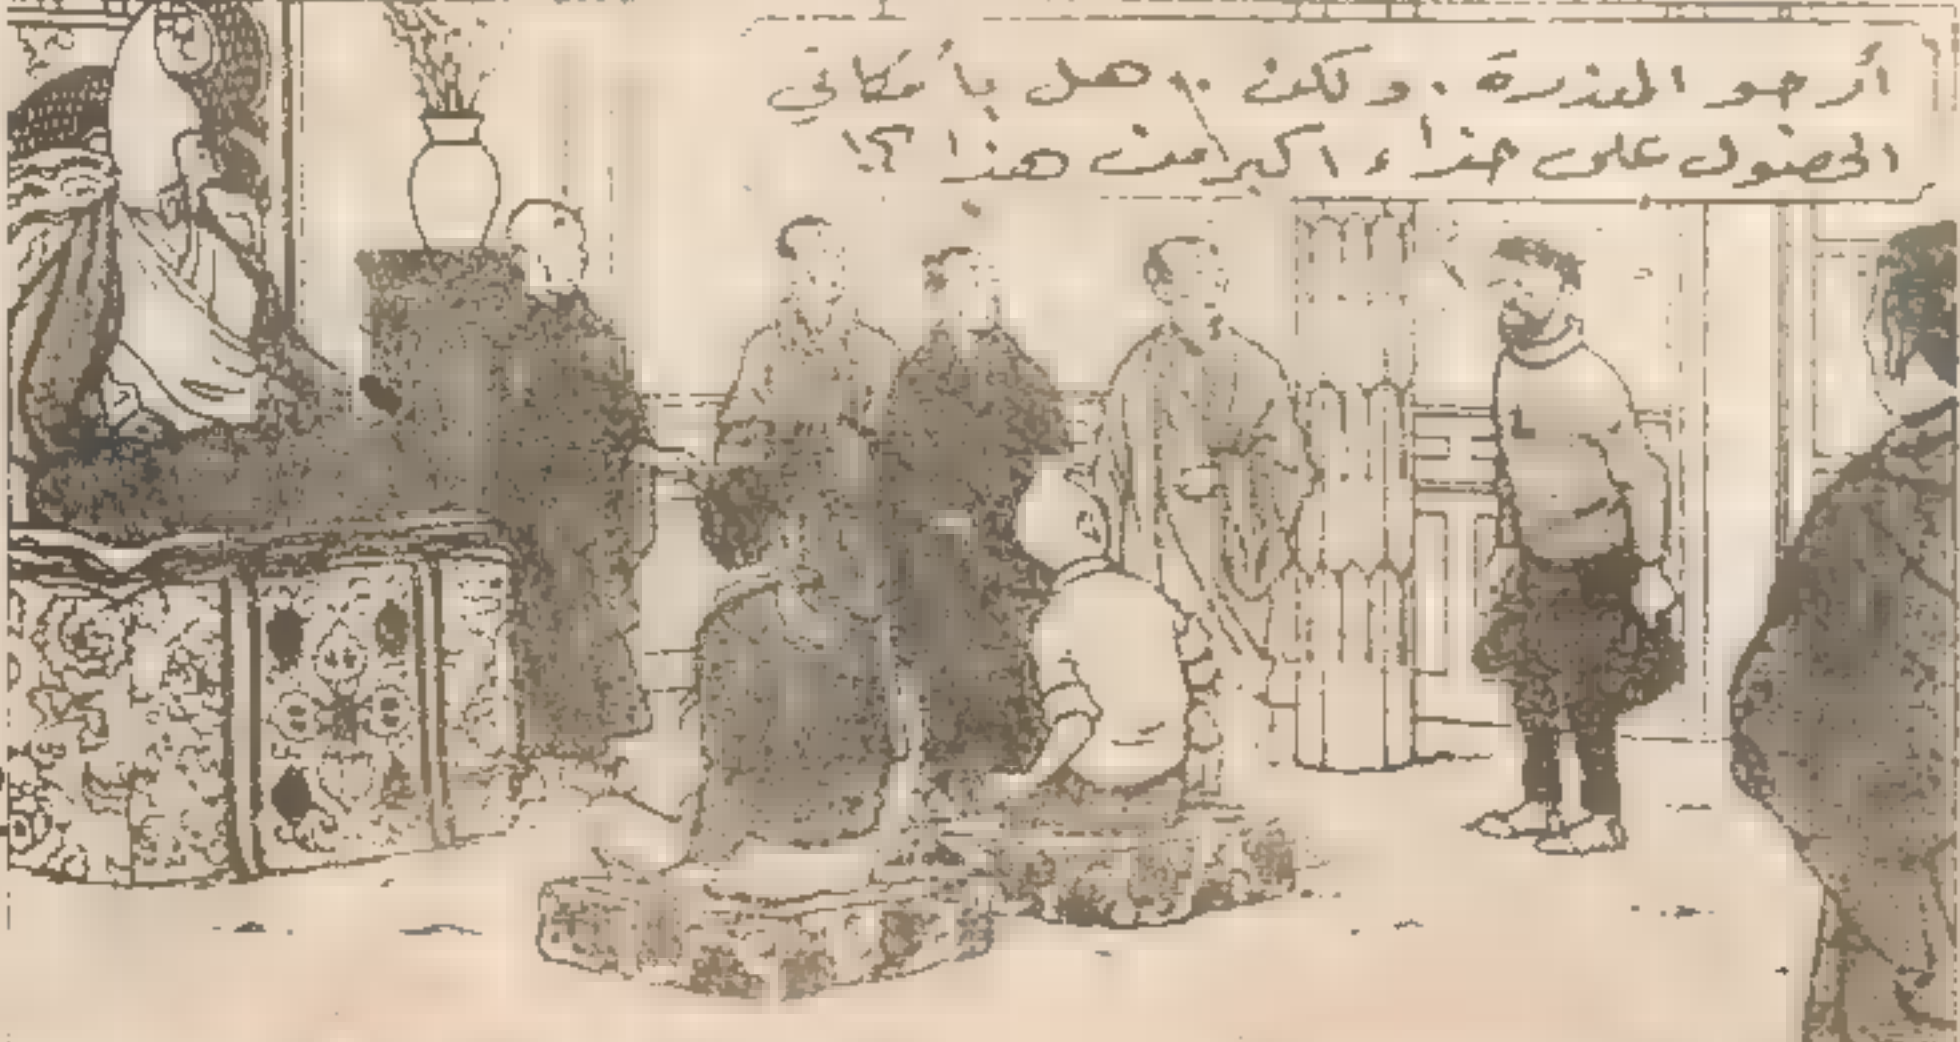 أرجو المعذرة . ولكن .. هل بأمكاني
الحصول على حذاء اكبر من هذا ؟!